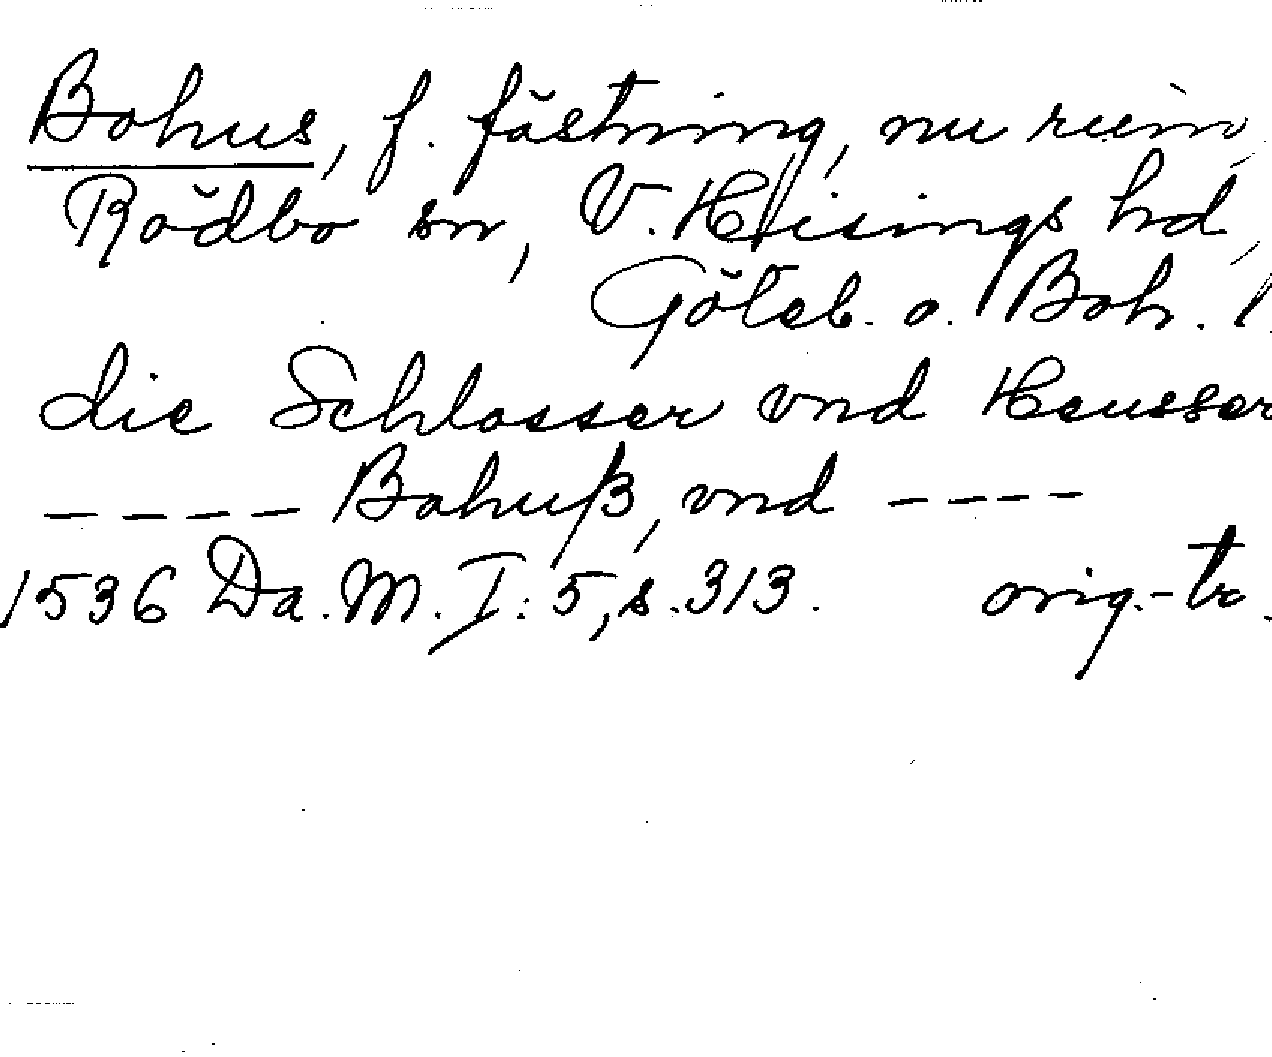 Bohus, f. fästning, nu ruin,
Rödbo sn, V. Hisings hd,
Göteb. o. Boh. l.
die Schlosser vnd Heusser
---- Bahuß, vnd ----
1536 Da. M. I: 5, s. 313. orig.-tr.